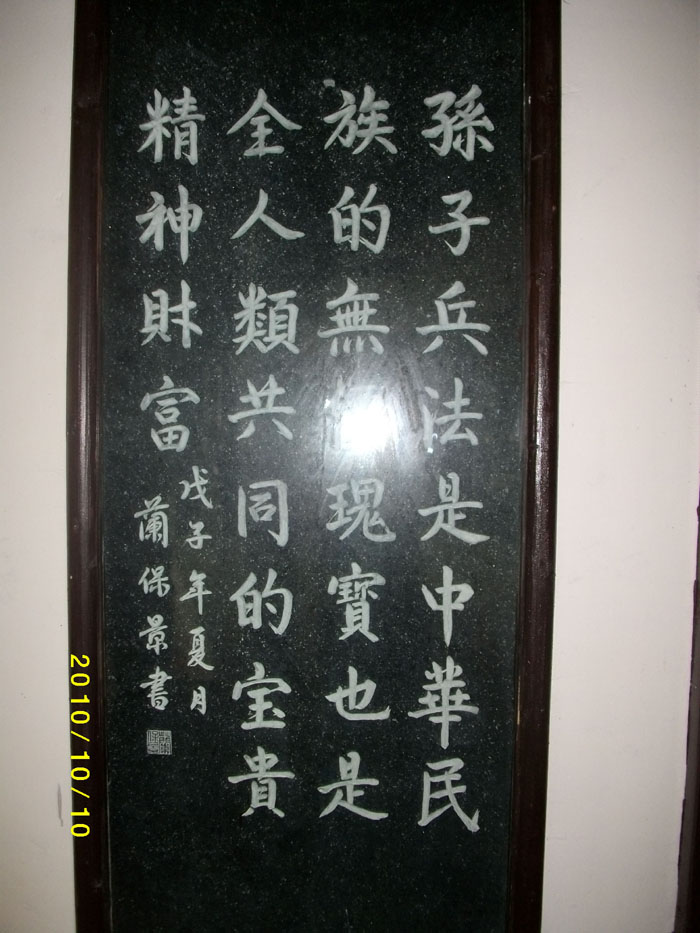 孫子兵法是中華民
族的無瑰寶也是
全人類共同的宝貴
精神財富
戊子年夏月
蘭保景書
2010/10/10